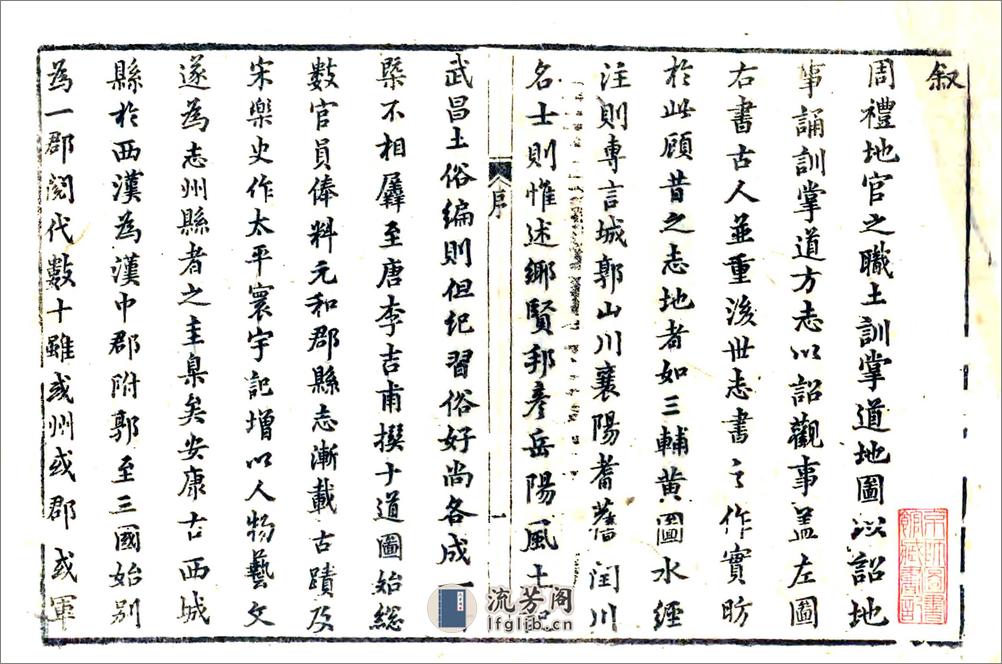 叙
周禮地官之職土訓掌道地圖以詔地
事誦訓掌道方志以詔觀事盖左圖
右書古人並重後世志書之作實昉
於此顧昔之志地者如三輔黄圖水經
注則專言城郭山川襄陽耆舊閏川
名士則惟述鄉賢邦彦岳陽風土
序
一
武昌土俗编則但纪習俗好尚各成一
槩不相屬至唐李吉甫撰十道圖始総
數官員俸料元和郡縣志漸載古蹟及
宋樂史作太平寰宇記增以人物藝文
遂為志州縣者之圭臬矣安康古西城
縣於西漢為漢中郡附郭至三國始别
為一郡閱代數十雖或州或郡或軍
流芳阁
lfglib.cn